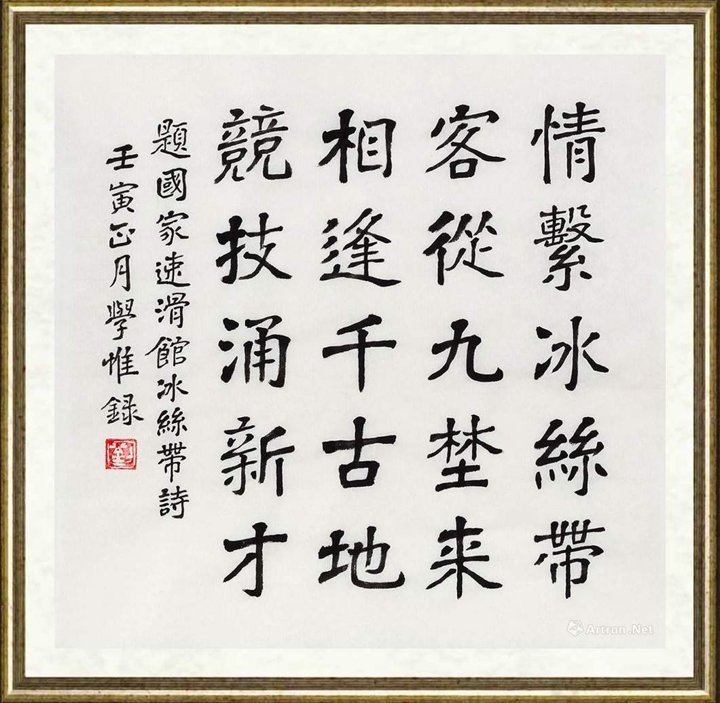 情繫冰絲帶
客從九埜来
相逢千古地
競技涌新才
題國家速滑館冰絲帶詩
壬寅正月學惟錄
Artron.Net